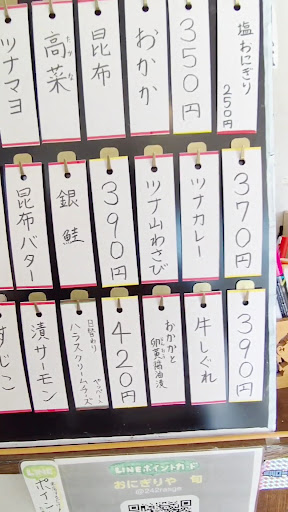 塩おにぎり
250円
350円
おかか
昆布
高菜
タカナ
ツナマヨ
370円
ツナカレー
ツナ山わさび
390円
銀鮭
昆布バター
390円
牛しぐれ
おかかと
卵黄醤油漬
420円
日替わり
ハラスクリームチーズ
漬サーモン
すじこ
LINEポイントカード
おにぎりや 旬
LINE
ポイン